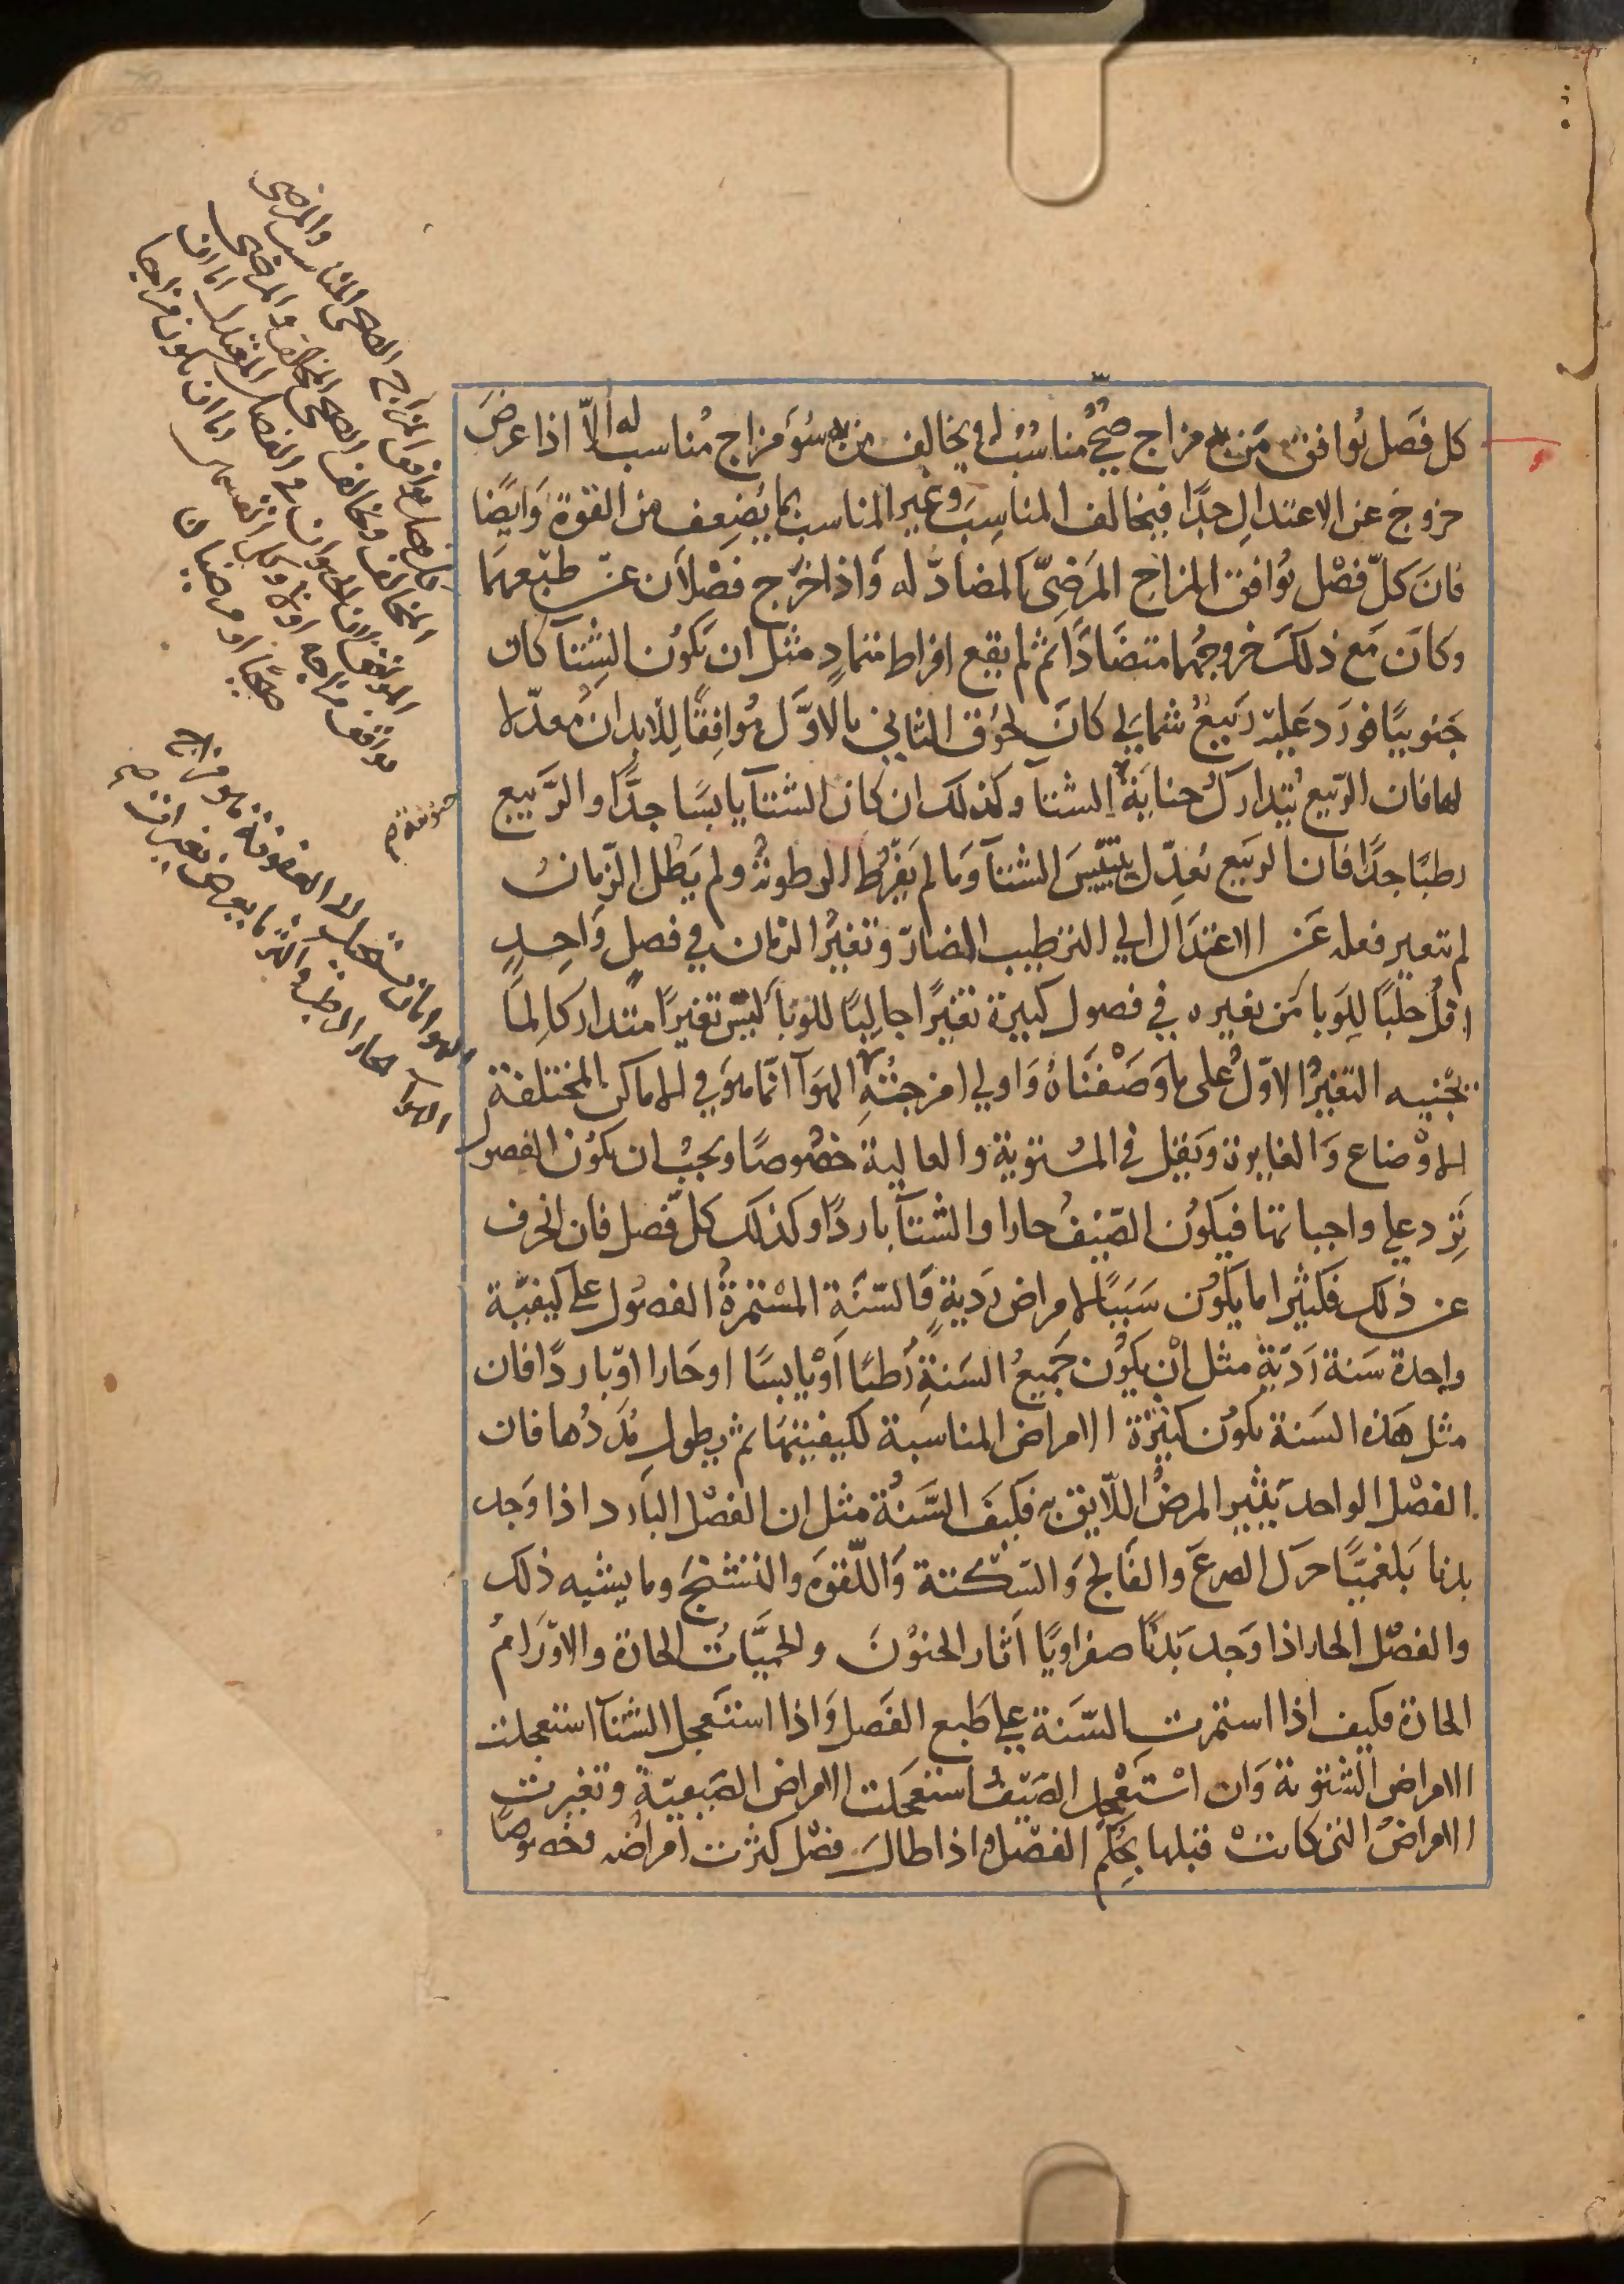 كل فصل يوافق من به مزاج صحي مناسب له ويخالف من به سوء مزاج مناسب له الا اذا عرض
خروج عن الاعتدال جدا فيخالف المناسب وغير المناسب بما يضعف من القوة وايضا
فان كل فصل يوافق المزاج المرضي المضاد له واذا خرج فصلان عن طبعهما
وكان مع ذلك خروجهما متضادا ثم لم يقع افراط متماد مثل ان يكون الشتا كان
جنوبيا فورد عليه ربيع شمالي كان لحوق الثاني بالاول موافقا للابدان معدلا
لها فان الربيع يتدارك جناية الشتا وكذلك ان كان الشتا يابسا جدا والربيع
رطبا جدا فان الربيع يعدل يبس الشتا وما لم يفرط الرطوبة ولم يطل الزمان
لم يتغير فعله عن الاعتدال الي الترطيب الضار وتغير الزمان في فصل واحد
اقل جلبا للوبا من تغيره في فصول كثيرة تغيرا جالبا للوبا ليس تغيرا متداركا لما
يجنيه التغير الاول على ما وصفناه واولي امزجة الهوا انما هو في الاماكن المختلفة
الاوضاع والغايرة ويقل في المستوية والعالية خصوصا ويجب ان يكون الفصول
ترد علي واجباتها فيكون الصيف حارا والشتا باردا وكذلك كل فصل فان انخرف
عن ذلك فكثيرا ما يكون سببا لامراض ردية فالسنة المستمرة الفصول على كيفية
واحدة سنة ردية مثل ان يكون جميع السنة رطبا او يابسا او حارا او باردا فان
مثل هذه السنة يكون كثيرة الامراض المناسبة لكيفيتها ثم يطول مددها فان
الفصل الواحد يثير المرض اللايق به فكيف السنة مثل ان الفصل البارد اذا وجد
بدنا بلغميا حرك الصرع والفالج والسكتة واللقوه والتشنج وما يشبه ذلك
والفصل الحار اذا وجد بدنا صفراويا اثار الجنون والحميات الحادة والاورام
الحادة فكيف اذا استمرت السنة علي طبع الفصل واذا استعجل الشتا استعجلت
الامراض الشتوية وان استعجل الصيف استعجلت الامراض الصيفية وتغيرت
الامراض التي كانت قبلها بحكم الفصل واذا طال فصل كثرت امراضه وخصوصا
كل فصل يوافق المزاج الصحي المناسب والمرضى
المخالف ويخالف الصحي المخالف والمرضى